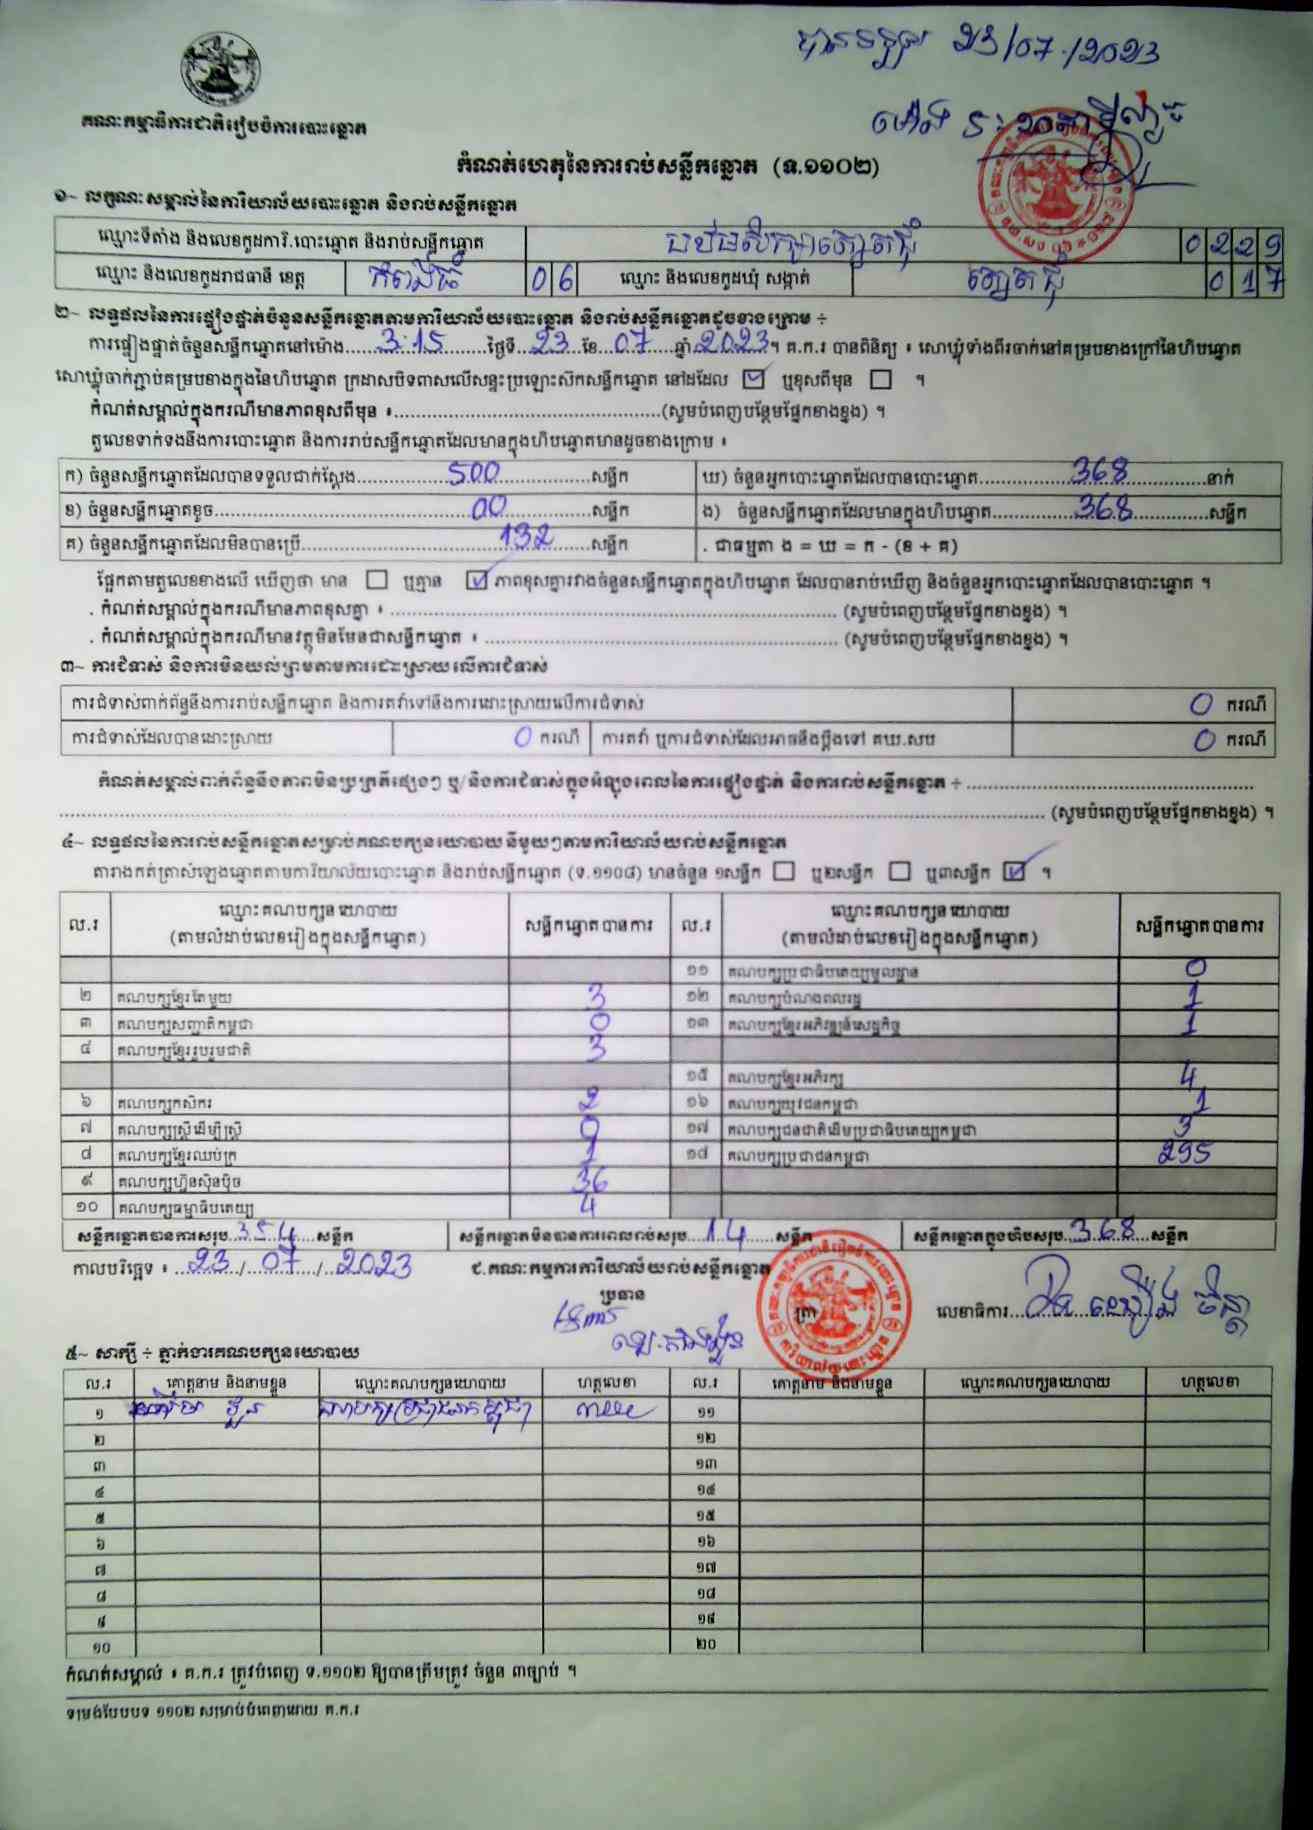 បានទទួល 23/07/2023
ម៉ោង
គណៈកម្មាធិការជាតិរៀបចំការបោះឆ្នោត
កំណត់ហេតុនៃការរាប់សន្លឹកឆ្នោត (ទ.១១០២)
១~ លក្ខណៈសម្គាល់នៃការិយាល័យបោះឆ្នោត និងរាប់សន្លឹកឆ្នោត
ឈ្មោះទីតាំង និងលេខកូដការិ.បោះឆ្នោត និងរាប់សន្លឹកឆ្នោត 0229
ឈ្មោះ និងលេខកូដរាជធានី ខេត្ត កំពង់ធំ 06 ឈ្មោះ និងលេខកូដឃុំ សង្កាត់ 017
២~ លទ្ធផលនៃការផ្ទៀងផ្ទាត់ចំនួនសន្លឹកឆ្នោតតាមការិយាល័យបោះឆ្នោត និងរាប់សន្លឹកឆ្នោតដូចខាងក្រោម ÷
ការផ្ទៀងផ្ទាត់ចំនួនសន្លឹកឆ្នោតនៅម៉ោង 3:15 ថ្ងៃទី 23 ខែ 07 ឆ្នាំ 2023 ។ គ.ក.រ បានពិនិត្យ ៖ សោឃ្លុំទាំងពីរចាក់នៅគម្របខាងក្រៅនៃហិបឆ្នោត
សោឃ្លុំចាក់ភ្ជាប់គម្របខាងក្នុងនៃហិបឆ្នោត ក្រដាសបិទពាសលើសន្ទះប្រឡោះស៊កសន្លឹកឆ្នោត នៅដដែល ☑ ឬខុសពីមុន ☐ ។
កំណត់សម្គាល់ក្នុងករណីមានភាពខុសពីមុន ៖ (សូមបំពេញបន្ថែមផ្នែកខាងខ្នង) ។
តួលេខទាក់ទងនឹងការបោះឆ្នោត និងការរាប់សន្លឹកឆ្នោតដែលមានក្នុងហិបឆ្នោតមានដូចខាងក្រោម ៖
ក) ចំនួនសន្លឹកឆ្នោតដែលបានទទួលជាក់ស្តែង 500 សន្លឹក ឃ) ចំនួនអ្នកបោះឆ្នោតដែលបានបោះឆ្នោត 368 នាក់
ខ) ចំនួនសន្លឹកឆ្នោតខូច 00 សន្លឹក ង) ចំនួនសន្លឹកឆ្នោតដែលមានក្នុងហិបឆ្នោត 368 សន្លឹក
គ) ចំនួនសន្លឹកឆ្នោតដែលមិនបានប្រើ 132 សន្លឹក . ជាធម្មតា ង = ឃ = ក - (ខ + គ)
ផ្អែកតាមតួលេខខាងលើ ឃើញថា មាន ☐ ឬគ្មាន ☑ ភាពខុសគ្នារវាងចំនួនសន្លឹកឆ្នោតក្នុងហិបឆ្នោត ដែលបានរាប់ឃើញ និងចំនួនអ្នកបោះឆ្នោតដែលបានបោះឆ្នោត ។
. កំណត់សម្គាល់ក្នុងករណីមានភាពខុសគ្នា ៖ (សូមបំពេញបន្ថែមផ្នែកខាងខ្នង) ។
. កំណត់សម្គាល់ក្នុងករណីមានវត្ថុមិនមែនជាសន្លឹកឆ្នោត ៖ (សូមបំពេញបន្ថែមផ្នែកខាងខ្នង) ។
៣~ ការជំទាស់ និងការមិនយល់ព្រមតាមការដោះស្រាយលើការជំទាស់
ការជំទាស់ពាក់ព័ន្ធនឹងការរាប់សន្លឹកឆ្នោត និងការតវ៉ាទៅនឹងការដោះស្រាយលើការជំទាស់ 0 ករណី
ការជំទាស់ដែលបានដោះស្រាយ 0 ករណី ការតវ៉ា ឬការជំទាស់ដែលអាចនឹងប្តឹងទៅ គឃ.សប 0 ករណី
កំណត់សម្គាល់ពាក់ព័ន្ធនឹងភាពមិនប្រក្រតីផ្សេងៗ ឬ/និងការជំទាស់ក្នុងអំឡុងពេលនៃការផ្ទៀងផ្ទាត់ និងការរាប់សន្លឹកឆ្នោត ÷
(សូមបំពេញបន្ថែមផ្នែកខាងខ្នង) ។
៤~ លទ្ធផលនៃការរាប់សន្លឹកឆ្នោតសម្រាប់គណបក្សនយោបាយនីមួយៗតាមការិយាល័យរាប់សន្លឹកឆ្នោត
តារាងកត់ត្រាសំឡេងឆ្នោតតាមការិយាល័យបោះឆ្នោត និងរាប់សន្លឹកឆ្នោត (ទ.១១០៨) មានចំនួន ១សន្លឹក ☐ ឬ២សន្លឹក ☐ ឬ៣សន្លឹក ☑ ។
ល.រ ឈ្មោះគណបក្សនយោបាយ (តាមលំដាប់លេខរៀងក្នុងសន្លឹកឆ្នោត) សន្លឹកឆ្នោតបានការ ល.រ ឈ្មោះគណបក្សនយោបាយ (តាមលំដាប់លេខរៀងក្នុងសន្លឹកឆ្នោត) សន្លឹកឆ្នោតបានការ
១១ គណបក្សប្រជាធិបតេយ្យមូលដ្ឋាន 0
២ គណបក្សខ្មែរតែមួយ 3 ១២ គណបក្សបំណងពលរដ្ឋ 1
៣ គណបក្សសញ្ជាតិកម្ពុជា 0 ១៣ គណបក្សខ្មែរអភិវឌ្ឍន៍សេដ្ឋកិច្ច 1
៤ គណបក្សខ្មែររួបរួមជាតិ 3
១៥ គណបក្សខ្មែរអភិរក្ស 4
៦ គណបក្សកសិករ 2 ១៦ គណបក្សយុវជនកម្ពុជា 1
៧ គណបក្សស្ត្រីដើម្បីស្ត្រី 0 ១៧ គណបក្សជនជាតិដើមប្រជាធិបតេយ្យកម្ពុជា 3
៨ គណបក្សខ្មែរឈប់ក្រ 1 ១៨ គណបក្សប្រជាជនកម្ពុជា 295
៩ គណបក្សហ្វ៊ុនស៊ិនប៉ិច 36
១០ គណបក្សធម្មាធិបតេយ្យ 4
សន្លឹកឆ្នោតបានការសរុប 354 សន្លឹក សន្លឹកឆ្នោតមិនបានការពេលរាប់សរុប 14 សន្លឹក សន្លឹកឆ្នោតក្នុងហិបសរុប 368 សន្លឹក
កាលបរិច្ឆេទ ៖ 23/07/2023 ជ.គណៈកម្មការការិយាល័យរាប់សន្លឹកឆ្នោត
ប្រធាន ត្រា លេខាធិការ
៥~ សាក្សី ÷ ភ្នាក់ងារគណបក្សនយោបាយ
ល.រ គោត្តនាម និងនាមខ្លួន ឈ្មោះគណបក្សនយោបាយ ហត្ថលេខា ល.រ គោត្តនាម និងនាមខ្លួន ឈ្មោះគណបក្សនយោបាយ ហត្ថលេខា
១ គណបក្សប្រជាជនកម្ពុជា ១១
២ ១២
៣ ១៣
៤ ១៤
៥ ១៥
៦ ១៦
៧ ១៧
៨ ១៨
៩ ១៩
១០ ២០
កំណត់សម្គាល់ ៖ គ.ក.រ ត្រូវបំពេញ ទ.១១០២ ឱ្យបានត្រឹមត្រូវ ចំនួន ៣ច្បាប់ ។
ទម្រង់បែបបទ ១១០២ សម្រាប់បំពេញដោយ គ.ក.រ